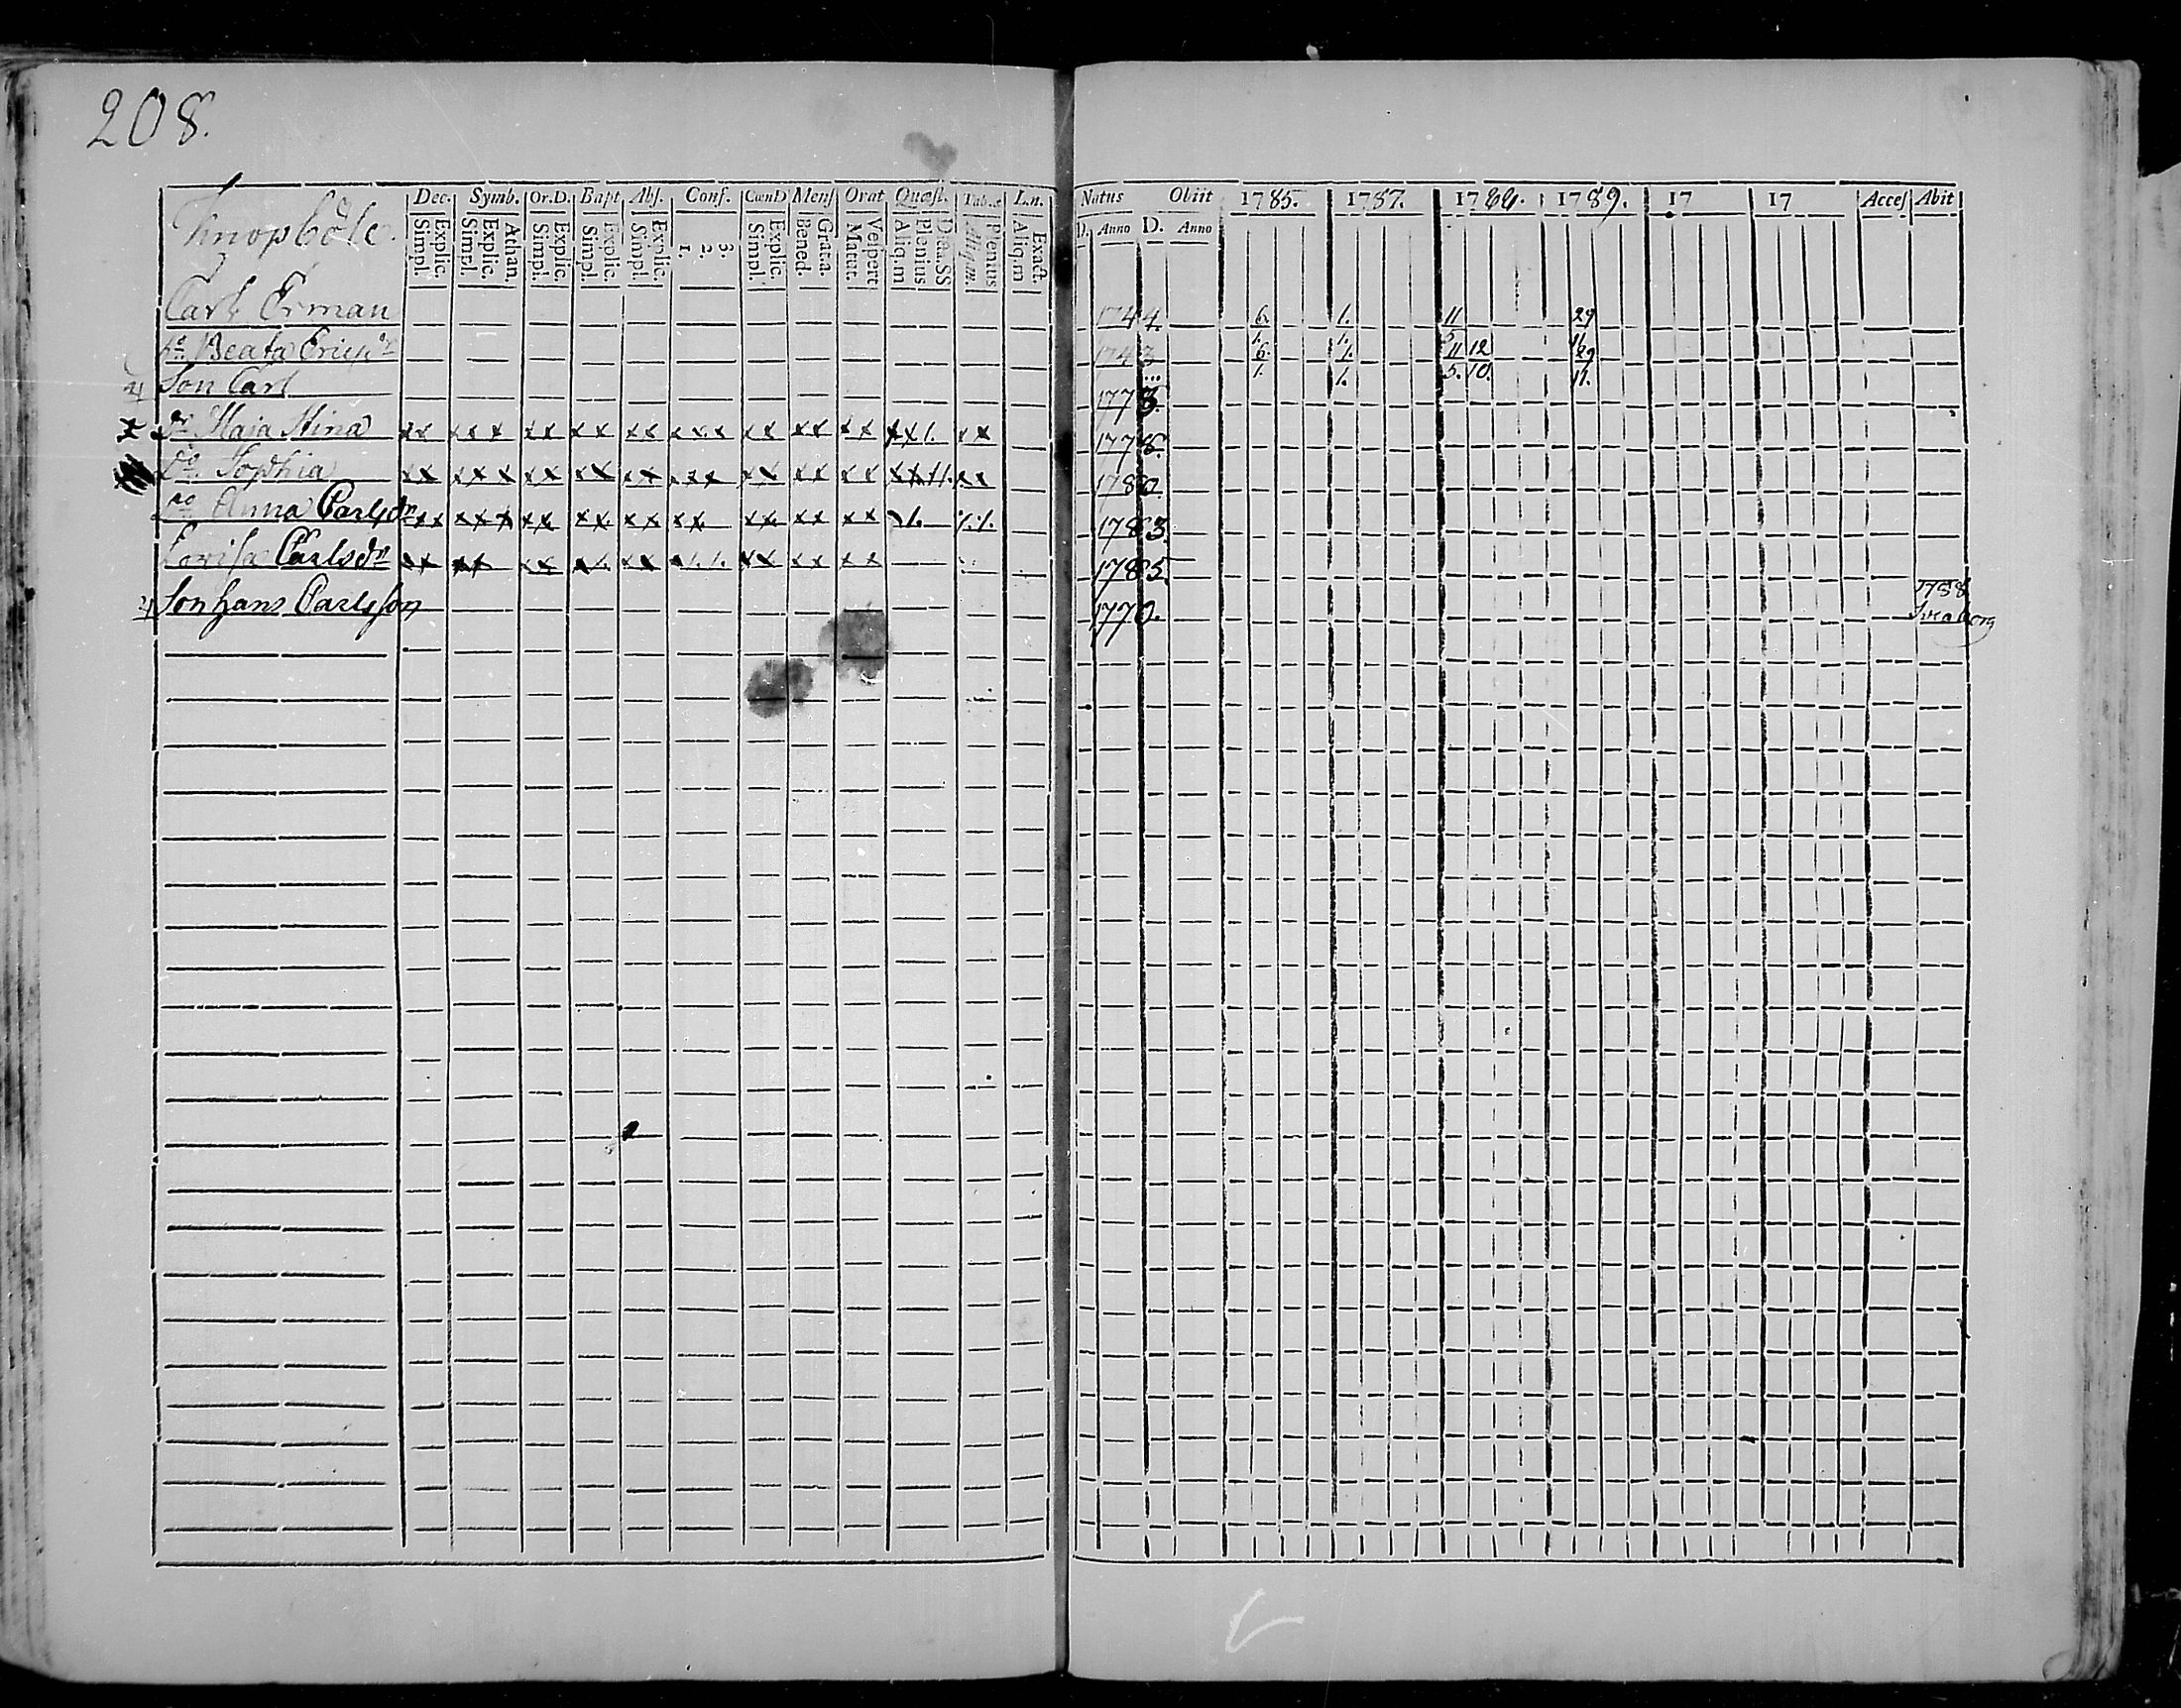 208.
Knopböle.
Dec. Symb. Or.D. Bapt Abs. Conf. CœnD Mens Orat Quæst. Tab. L.n.
Simpl. Explic. Simpl. Explic. Athan. Simpl. Explic. Simpl. Explic. Simpl. Explic. 1. 2. 3. Simpl. Explic. Bened. Grat.a. Matut. Vespert Aliq.m Plenius Dicta.SS Aliq.m. Plenius Aliq.m Exact.
Natus Obiit 1785. 1787. 1788. 1789. 17 17 Acces Abit
D. Anno D. Anno
Carl Erman 1744. 6. 1. 1. 11 5 29 11
Beata Ericsdr 1743 6. 1. 1. 1. 11 5. 12 10. 29 11.
Son Carl 1773.
Dr Maja Stina xx xxx xx xx xx xxx xx xx xx xx1. xx 1778.
Do. Sophia xx xxx xx xx xx xxx xx xx xx xx 1780.
Do Anna Carlsdr xx xxx xx xx xx xx xx xx xx 1783.
Lovisa Carlsdr xx xx xx xx xx xx xx 1785.
Son Hans Carlsson 1770. 1788 Sveaborg